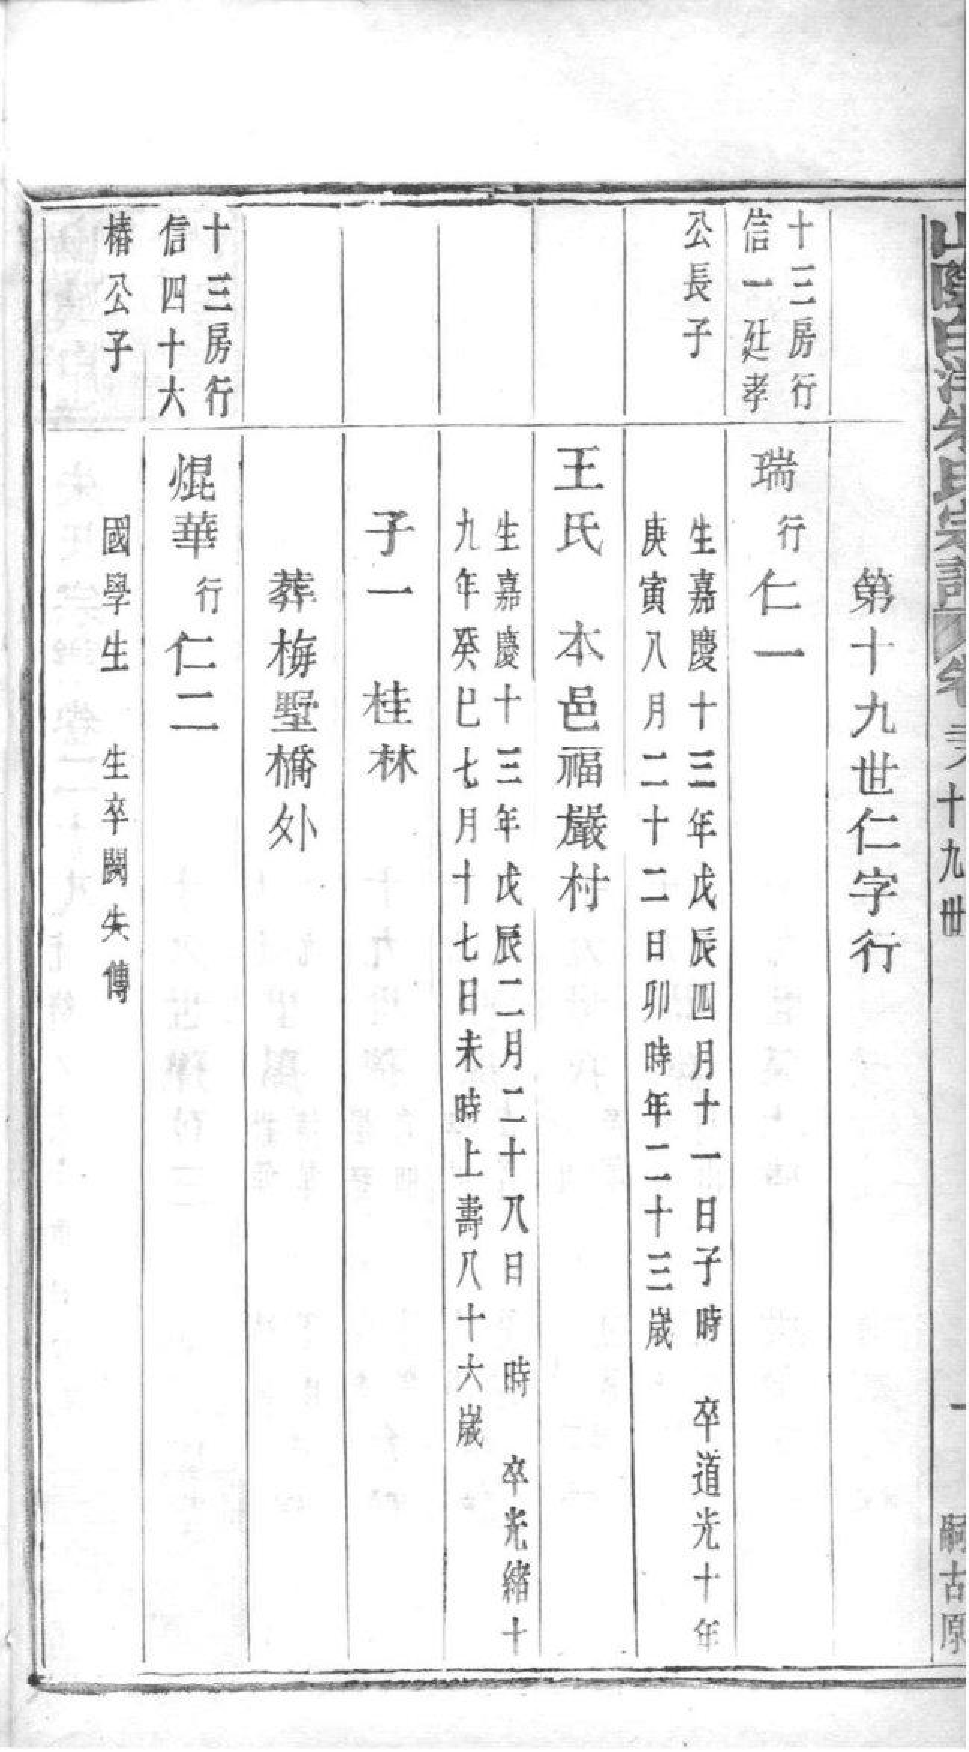 山陰白洋朱氏宗譜
卷
十九世
一
嗣古原
第十九世仁字行
十三房行
信一延孝
瑞
行
仁一
公長子
生嘉慶十三年戊辰四月十一日子時 卒道光十年
庚寅八月二十二日卯時年二十三歲
王氏 本邑福巖村
生嘉慶十三年戊辰二月二十八日 時 卒光緒十
九年癸巳七月十七日未時上壽八十六歲
子一 桂林
葬梅墅橋外
十三房行
信四十六
焜華
行
仁二
椿公子
國學生 生卒闕失傳